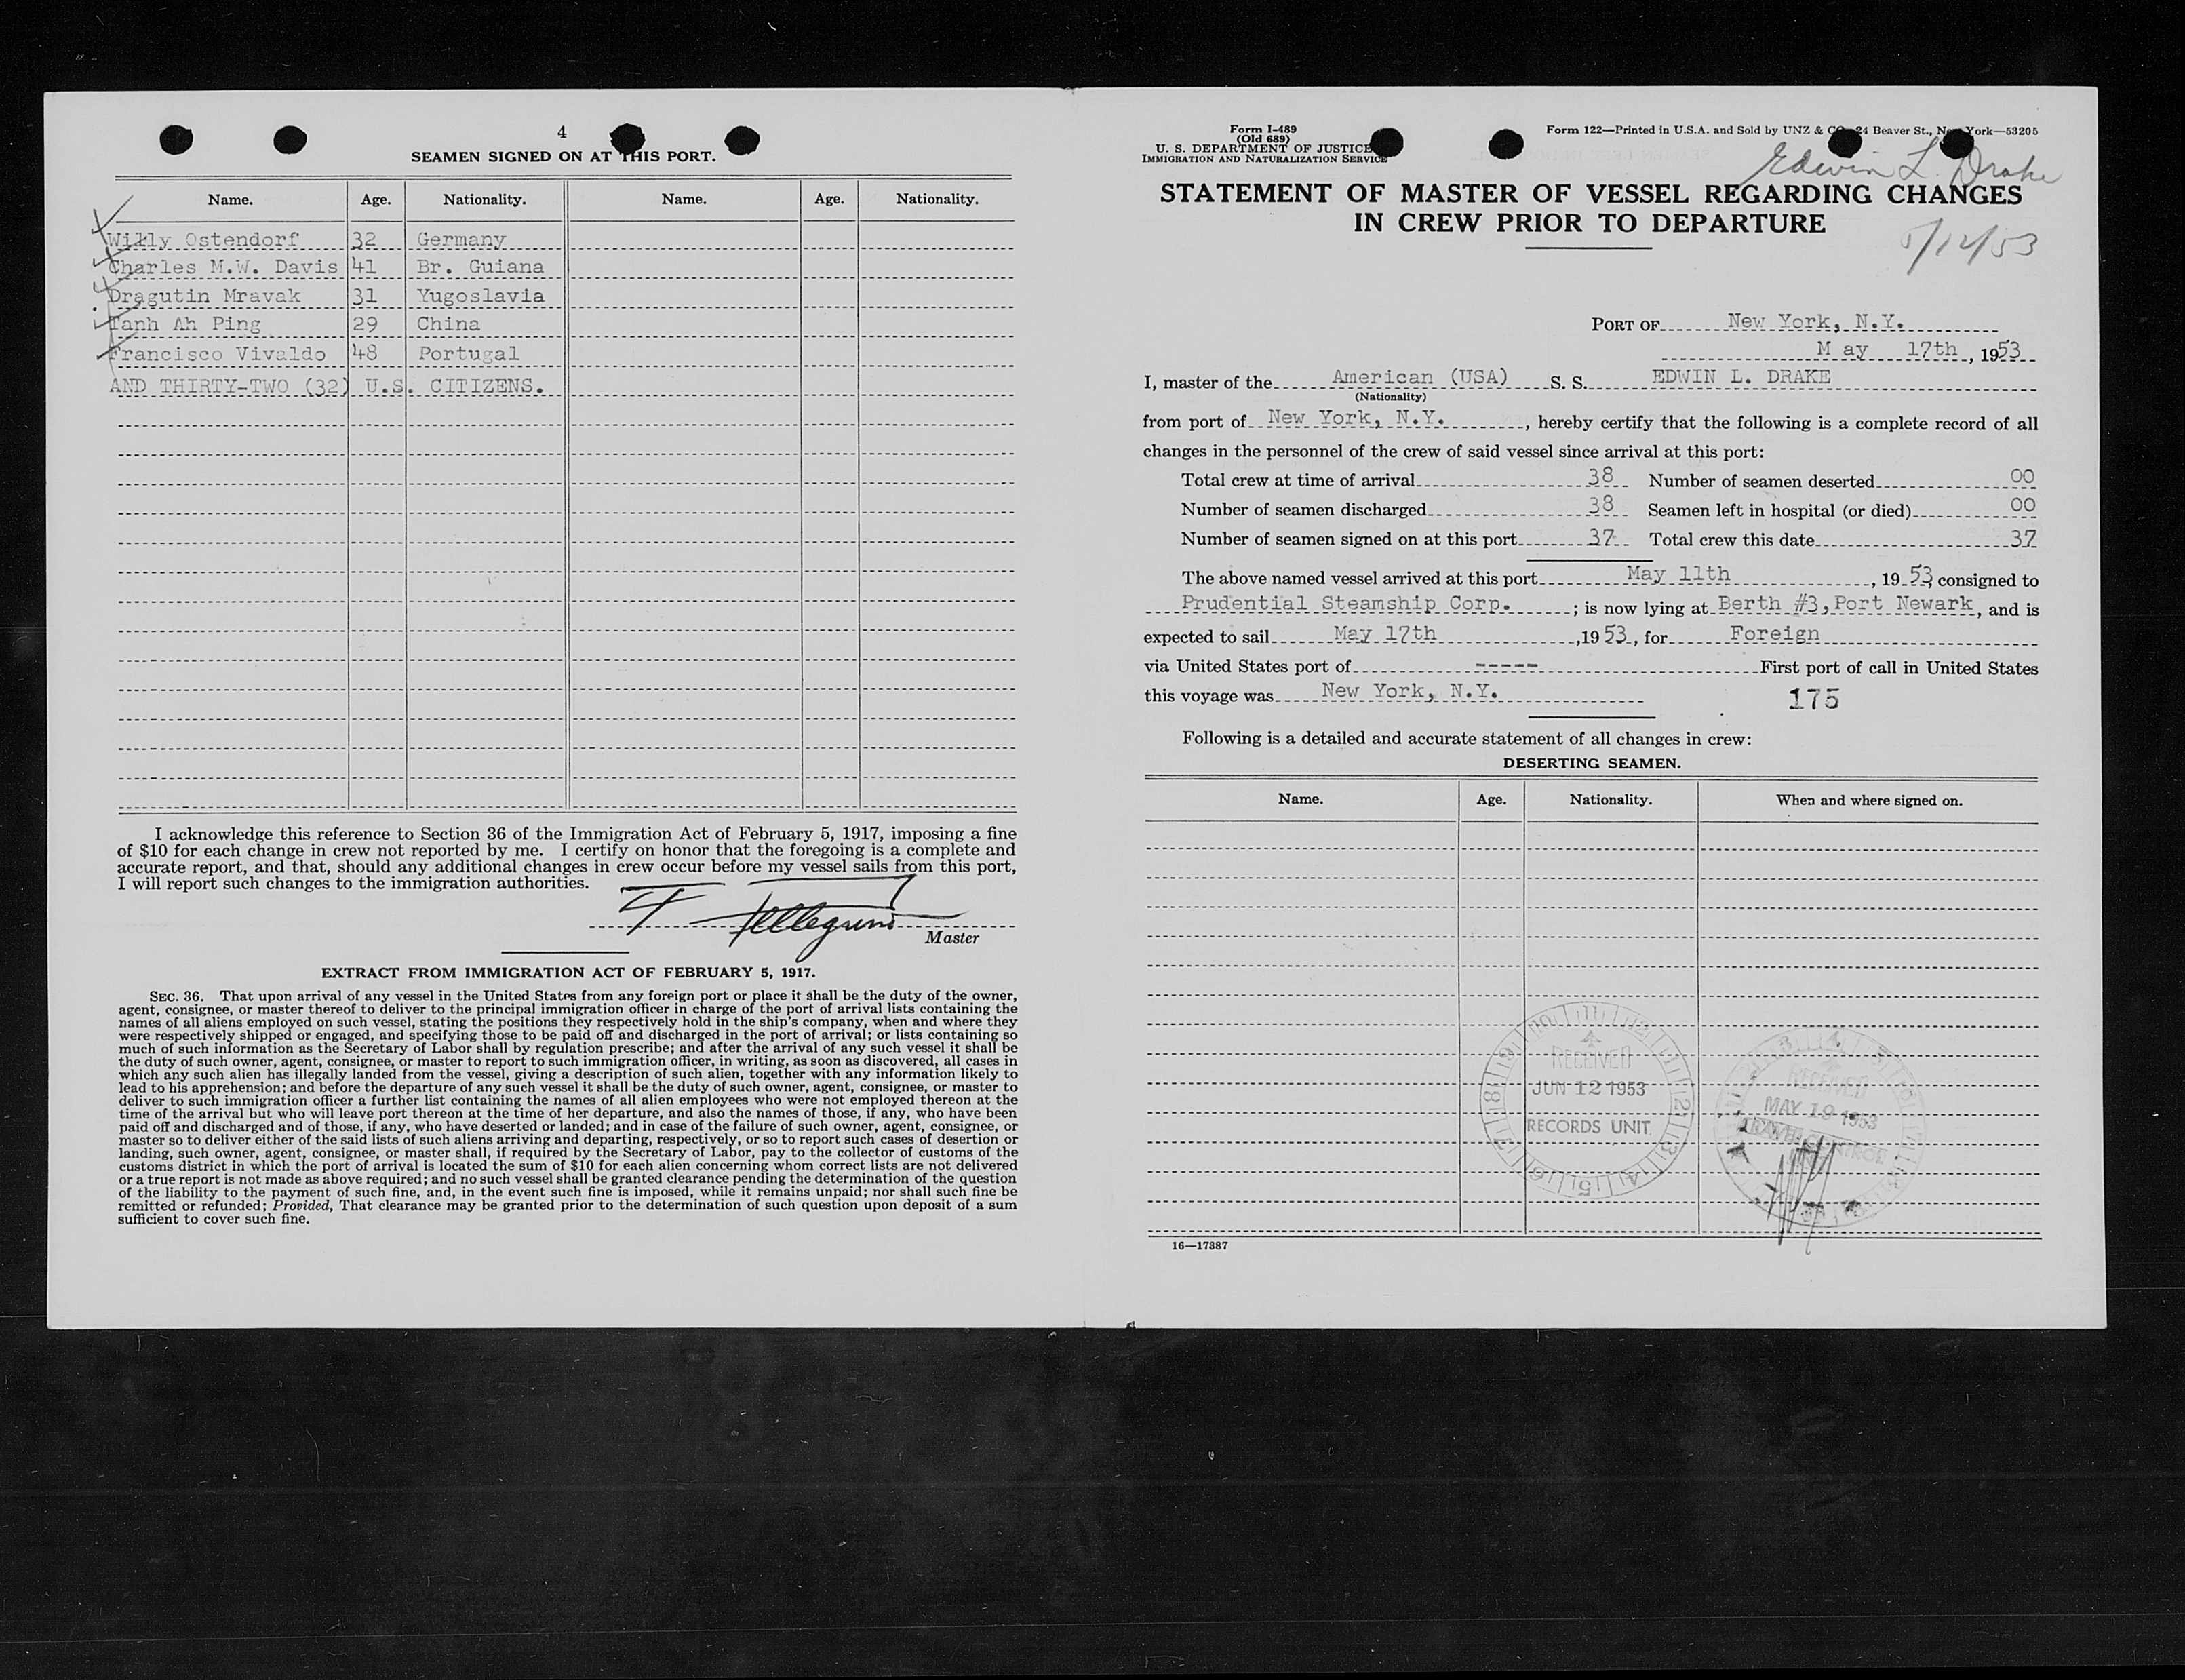 4
SEAMEN SIGNED ON AT THIS PORT.
Name. Age. Nationality. Name. Age. Nationality.
Willy Ostendorf 32 Germany
Charles M.W. Davis 41 Br. Guiana
Dragutin Mravak 31 Yugoslavia
Tanh Ah Ping 29 China
Francisco Vivaldo 48 Portugal
AND THIRTY-TWO (32) U.S. CITIZENS.
I acknowledge this reference to Section 36 of the Immigration Act of February 5, 1917, imposing a fine
of $10 for each change in crew not reported by me. I certify on honor that the foregoing is a complete and
accurate report, and that, should any additional changes in crew occur before my vessel sails from this port,
I will report such changes to the immigration authorities.
Master
EXTRACT FROM IMMIGRATION ACT OF FEBRUARY 5, 1917.
SEC. 36. That upon arrival of any vessel in the United States from any foreign port or place it shall be the duty of the owner,
agent, consignee, or master thereof to deliver to the principal immigration officer in charge of the port of arrival lists containing the
names of all aliens employed on such vessel, stating the positions they respectively hold in the ship's company, when and where they
were respectively shipped or engaged, and specifying those to be paid off and discharged in the port of arrival; or lists containing so
much of such information as the Secretary of Labor shall by regulation prescribe; and after the arrival of any such vessel it shall be
the duty of such owner, agent, consignee, or master to report to such immigration officer, in writing, as soon as discovered, all cases in
which any such alien has illegally landed from the vessel, giving a description of such alien, together with any information likely to
lead to his apprehension; and before the departure of any such vessel it shall be the duty of such owner, agent, consignee, or master to
deliver to such immigration officer a further list containing the names of all alien employees who were not employed thereon at the
time of the arrival but who will leave port thereon at the time of her departure, and also the names of those, if any, who have been
paid off and discharged and of those, if any, who have deserted or landed; and in case of the failure of such owner, agent, consignee, or
master so to deliver either of the said lists of such aliens arriving and departing, respectively, or so to report such cases of desertion or
landing, such owner, agent, consignee, or master shall, if required by the Secretary of Labor, pay to the collector of customs of the
customs district in which the port of arrival is located the sum of $10 for each alien concerning whom correct lists are not delivered
or a true report is not made as above required; and no such vessel shall be granted clearance pending the determination of the question
of the liability to the payment of such fine, and, in the event such fine is imposed, while it remains unpaid; nor shall such fine be
remitted or refunded; Provided, That clearance may be granted prior to the determination of such question upon deposit of a sum
sufficient to cover such fine.
Form I-489
(Old 689)
U. S. DEPARTMENT OF JUSTICE
IMMIGRATION AND NATURALIZATION SERVICE
Form 122—Printed in U.S.A. and Sold by UNZ & CO., 24 Beaver St., New York—53205
Edwin L. Drake
STATEMENT OF MASTER OF VESSEL REGARDING CHANGES
IN CREW PRIOR TO DEPARTURE
5/12/53
PORT OF New York, N.Y.
May 17th, 1953
I, master of the American (USA) S. S. EDWIN L. DRAKE
(Nationality)
from port of New York, N.Y., hereby certify that the following is a complete record of all
changes in the personnel of the crew of said vessel since arrival at this port:
Total crew at time of arrival 38 Number of seamen deserted 00
Number of seamen discharged 38 Seamen left in hospital (or died) 00
Number of seamen signed on at this port 37 Total crew this date 37
The above named vessel arrived at this port May 11th, 1953 consigned to
Prudential Steamship Corp.; is now lying at Berth #3, Port Newark, and is
expected to sail May 17th, 1953, for Foreign
via United States port of ----- First port of call in United States
this voyage was New York, N.Y.
175
Following is a detailed and accurate statement of all changes in crew:
DESERTING SEAMEN.
Name. Age. Nationality. When and where signed on.
RECEIVED
JUN 12 1953
RECORDS UNIT
RECEIVED
MAY 19 1953
16—17387